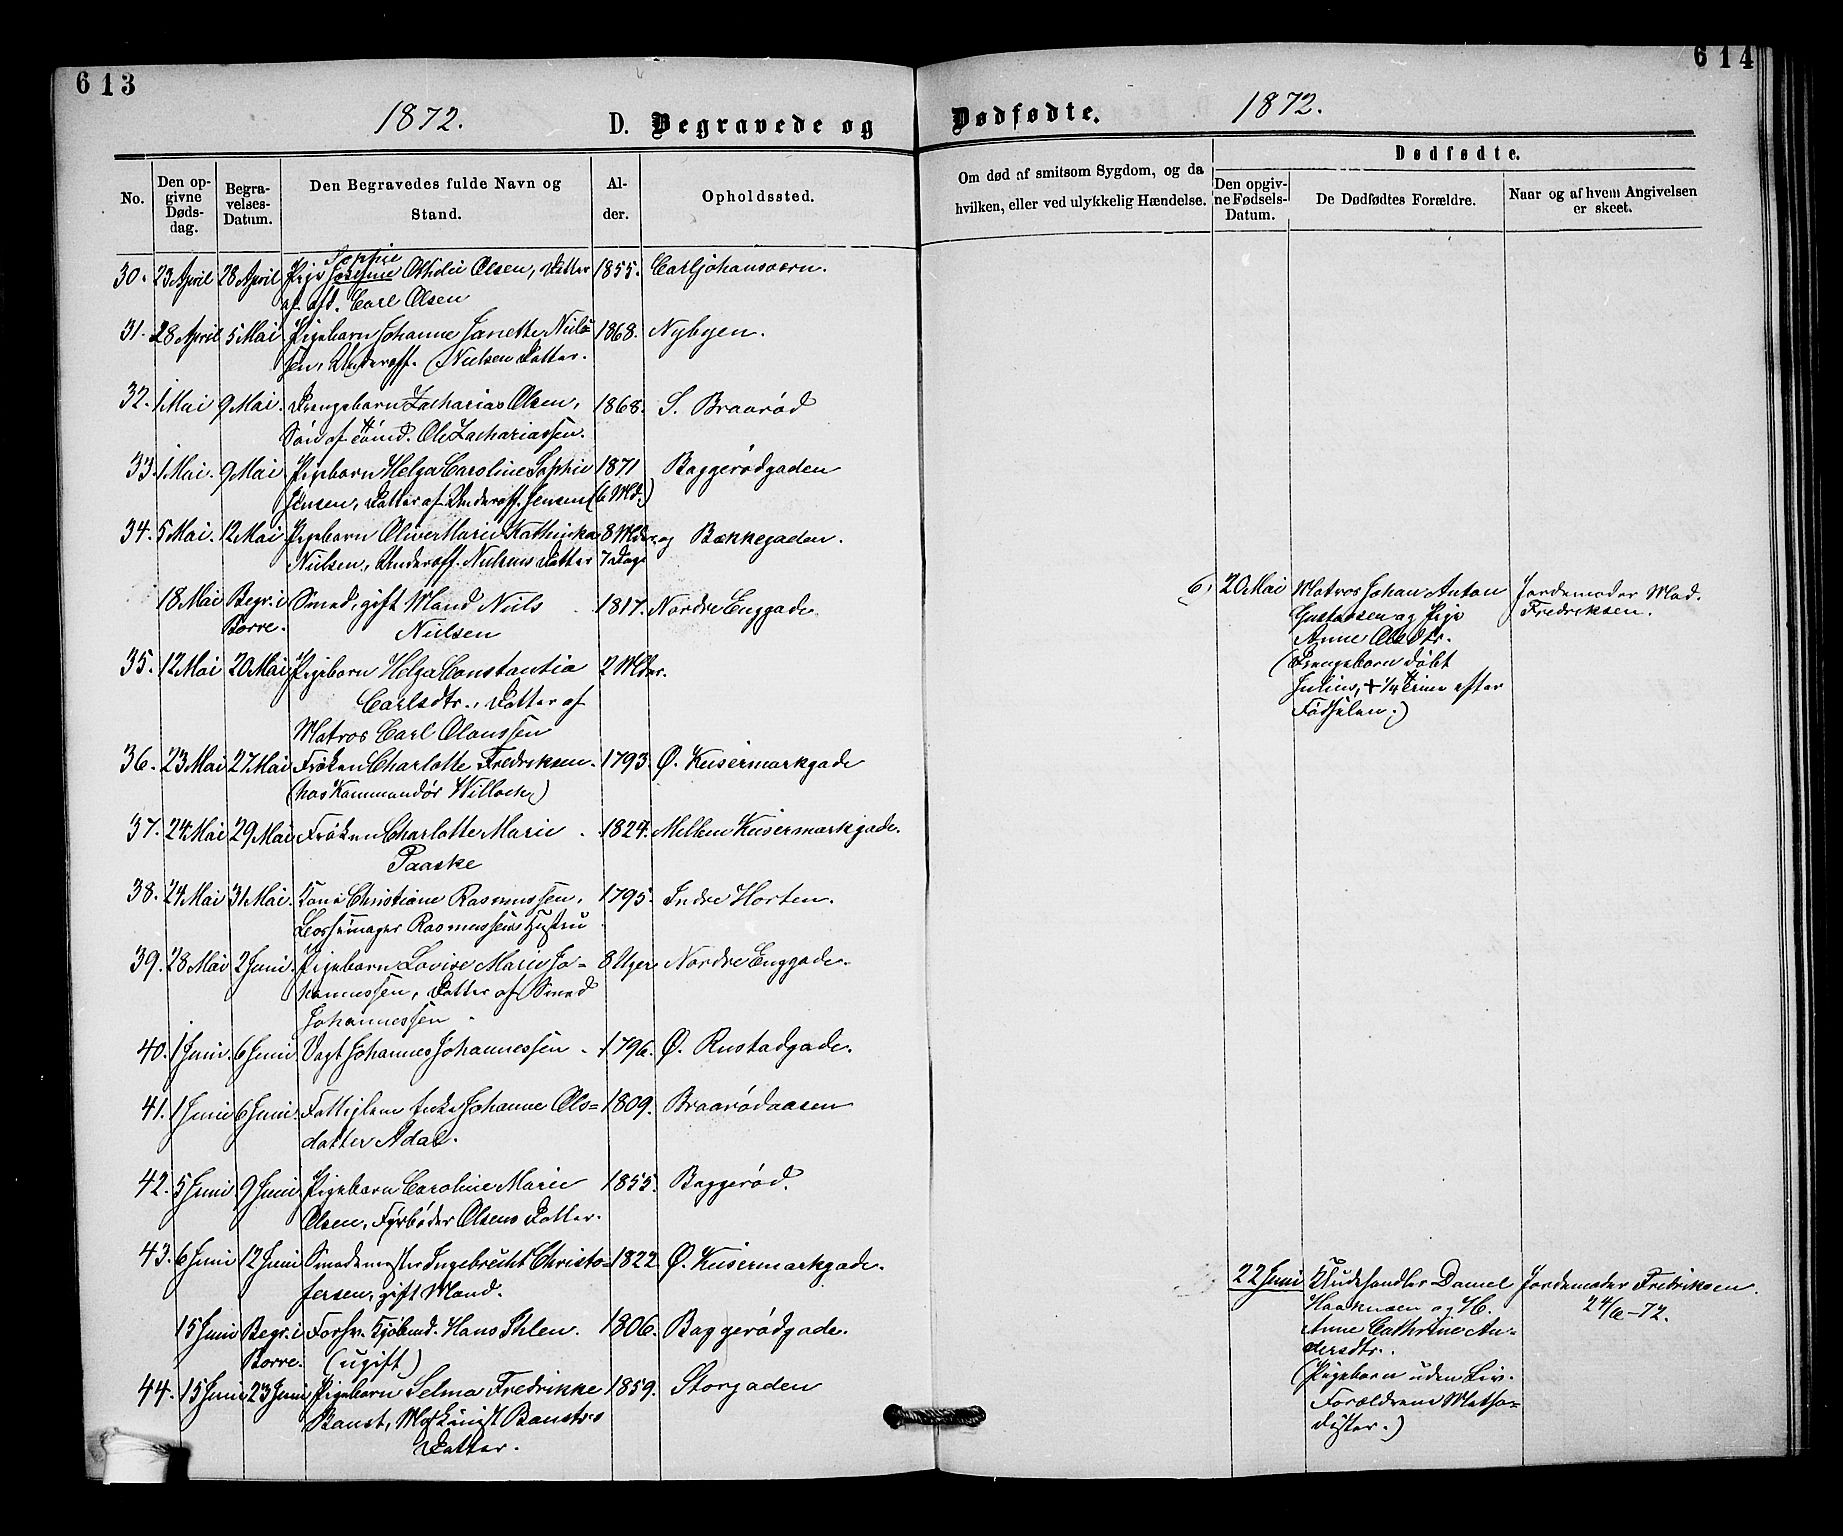 613
614
1872. D. Begravede og Dødfødte. 1872.
No.
Den opgivne Dødsdag.
Begravelses-Datum.
Den Begravedes fulde Navn og Stand.
Alder.
Opholdssted.
Om død af smitsom Sygdom, og da hvilken, eller ved ulykkelig Hændelse.
Dødfødte.
Den opgivne Fødsels-Datum.
De Dødfødtes Forældre.
Naar og af hvem Angivelsen er skeet.
Sophie
30. 23 April 28 April Pige Josefine Othilie Olsen, Datter 1855. Carljohansværn.
af afd. Carl Olsen
31. 28 April 5 Mai Pigebarn Johanne Janette Niel= 1868. Nybyen.
sen, Underoff. Nielsens Datter.
32. 1 Mai 9 Mai. Drengebarn Zacharias Olsen, 1868. S. Braarød
Søn af Tømd. Ole Zachariassen.
33. 1 Mai. 9 Mai Pigebarn Helga Caroline Sophie 1871 Baggerødgaden
Jensen, Datter af Underoff. Jensen (6 Md.)
34. 5 Mai. 12 Mai Pigebarn Olive Marie Kathinka 8 Mdr. og Bækkegaden.
Nielsen, Underoff. Nielsens Datter 7 Dage
18 Mai Begr. i Smed, gift Mand Niels 1817. Nordre Enggade.
Borre. Nielsen
35. 12 Mai 20 Mai Pigebarn Helga Constantia 2 Mdr.
Carlsdtr., Datter af
Matros Carl Olaussen
36. 23 Mai 27 Mai Frøken Charlotte Fredriksen. 1793. Ø. Keisermarkgade
(hos Kommandør Willoch)
37. 24 Mai 29 Mai Frøken Charlotte Marie 1824. Mellem Keisermarkgade.
Paaske
38. 24 Mai 31 Mai. Kone Christiane Rasmussen, 1795. Indre Horten.
Rasmussens Hustru
39. 28 Mai 2 Juni. Pigebarn Lovise Marie Jo= 8 Uger Nordre Enggade.
hannessen, Datter af Smed
Johannessen
40. 1 Juni. 6 Juni Vagt Johannes Johannessen 1796. Ø. Rustadgade.
41. 1 Juni 6 Juni. Fattiglem Enke Johanne Ols= 1809. Braarødaasen
datter Adal.
42. 5 Juni 9 Juni Pigebarn Caroline Marie 1855. Baggerød.
Olsen, Fyrbøder Olsens Datter.
43. 6 Juni 12 Juni Smedemester Ingebrecht Christo= 1822 Ø. Keisermarkgade.
fersen, gift Mand.
15 Juni Begr. i Forhv. Kjøbmd. Hans Ihlen. 1806. Baggerødgade.
Borre. (ugift)
44. 15 Juni 23 Juni Pigebarn Selma Fredrikke 1859. Storgaden
Banst, Maskinist Bansts
Datter.
6. 20 Mai Matros Johan Anton Jordemoder Mad.
Gustavsen og Pige Fredriksen.
Anne Olsdtr.
(Drengebarn døbt
Julius, + 1/4 Time efter
Fødselen.)
22 Juni Kludehandler Daniel Jordemoder Fredriksen.
Haakonsen og H. 24/6–72.
Anne Cathrine An=
dersdtr.
(Pigebarn uden Liv.
Forældrene Metho=
dister.)